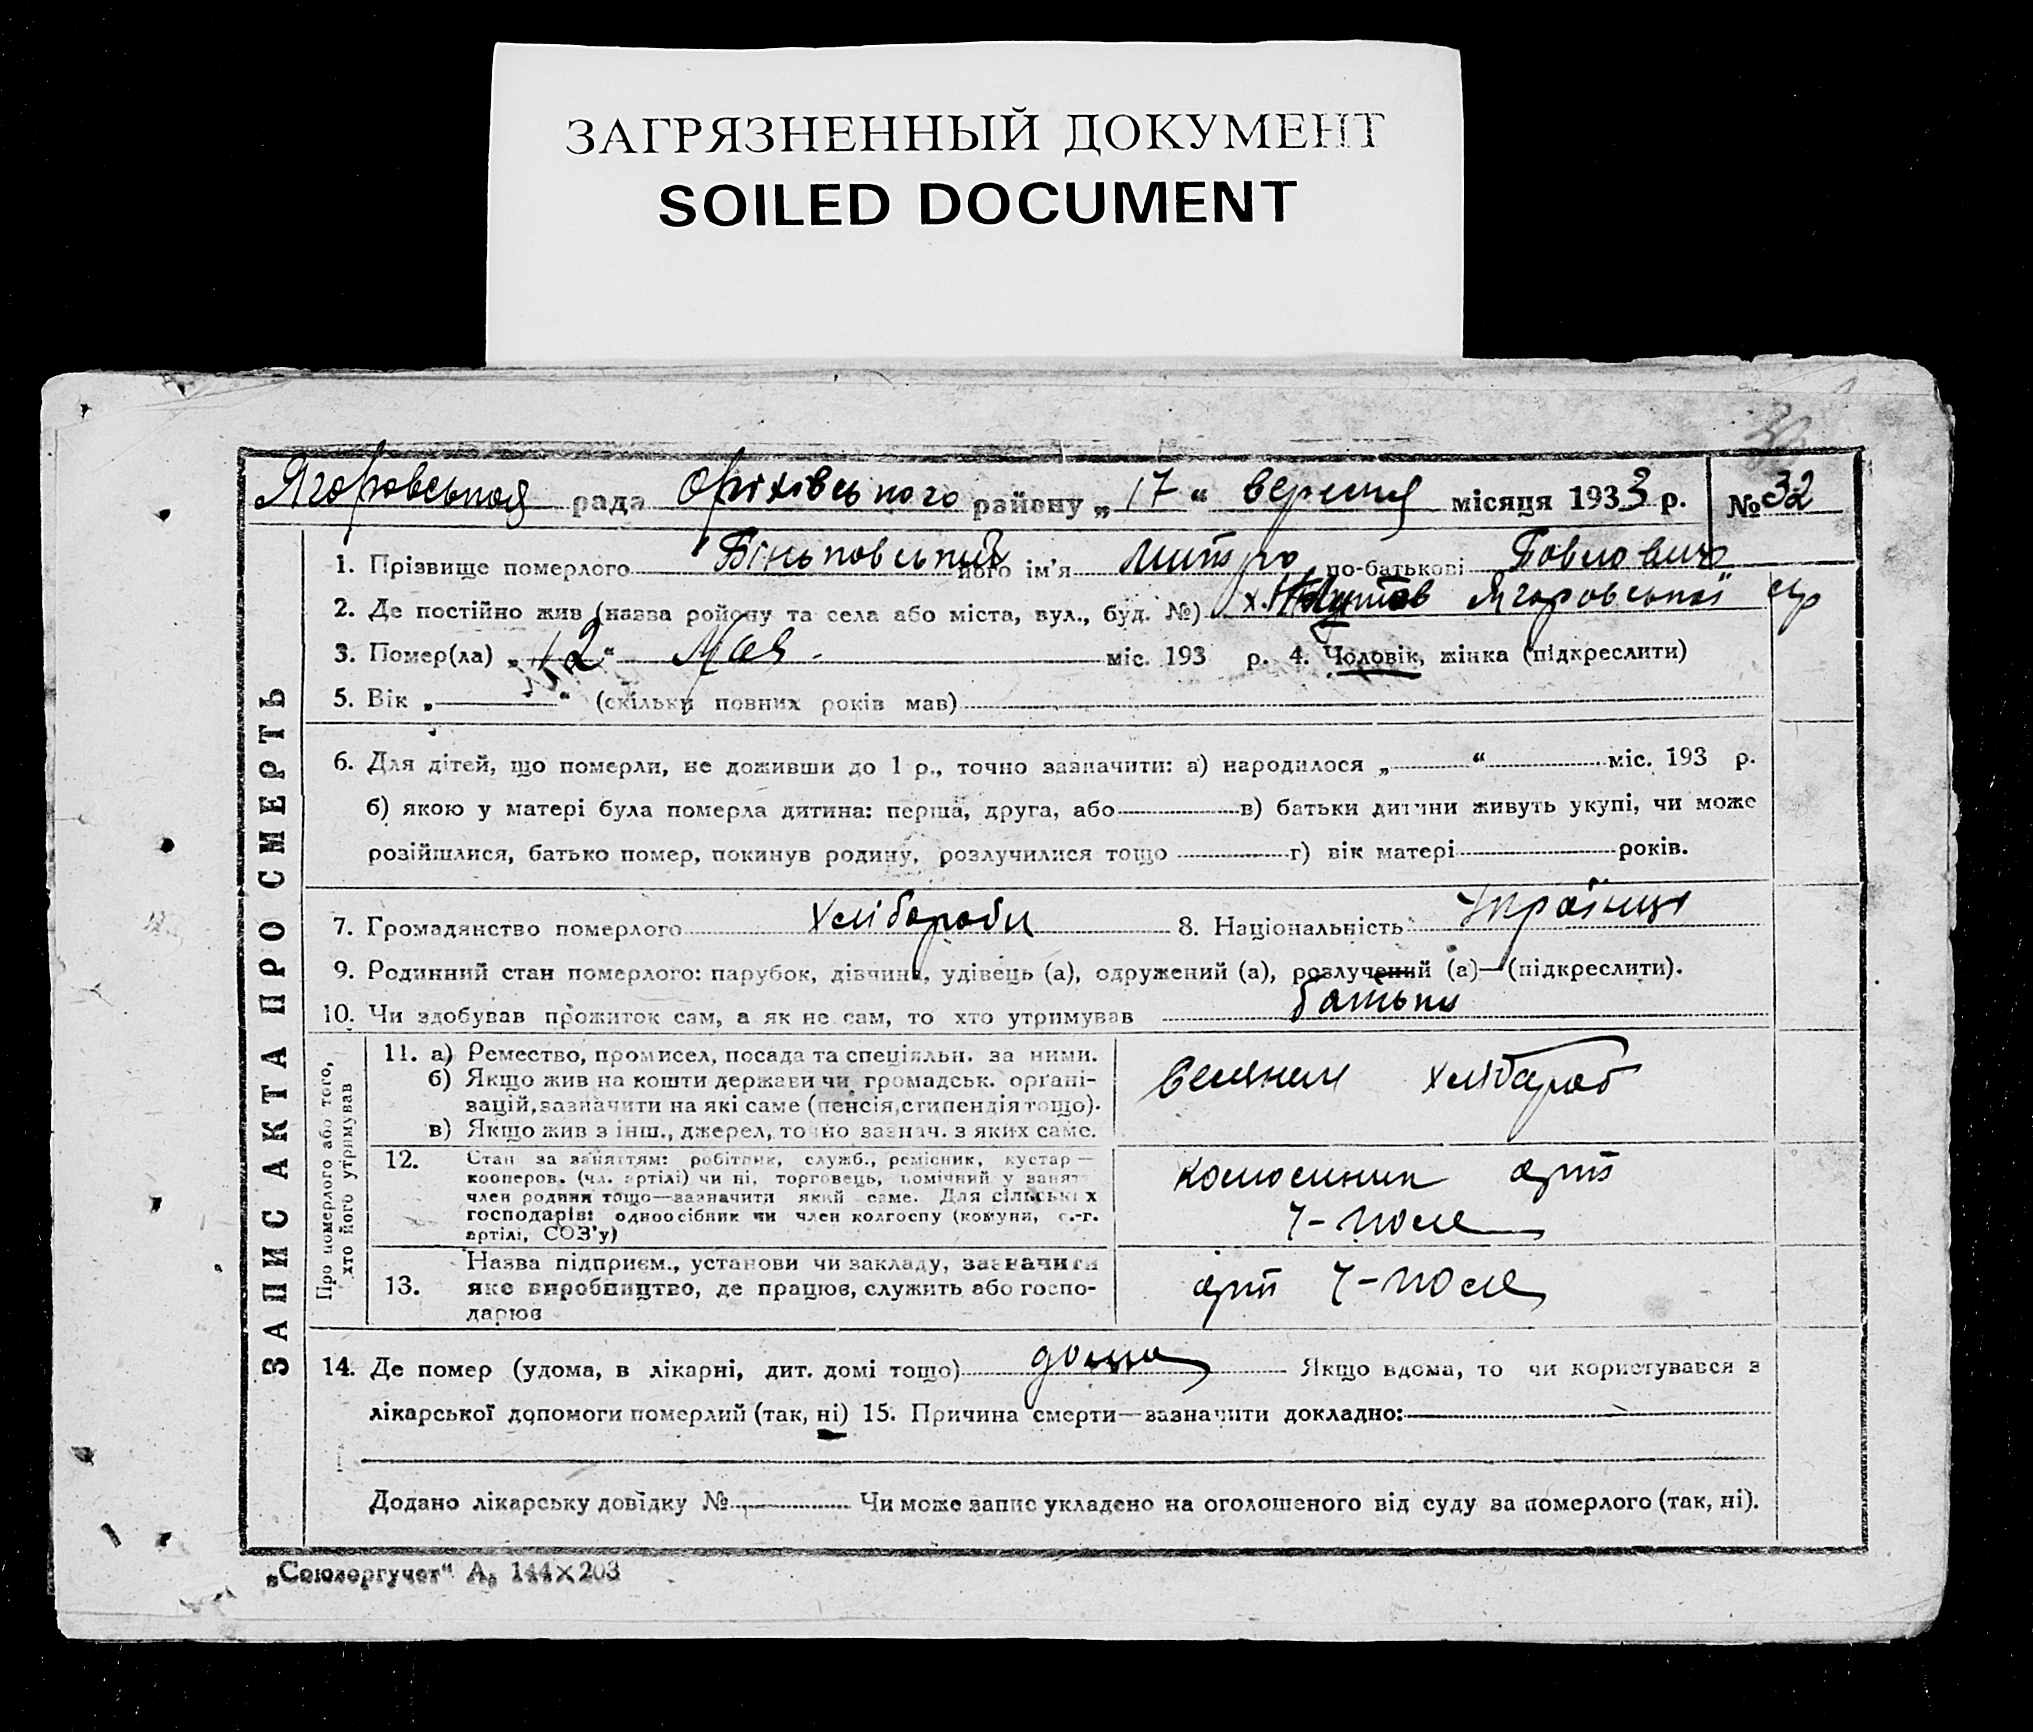 ЗАГРЯЗНЕННЫЙ ДОКУМЕНТ
SOILED DOCUMENT
30
Ягоровською рада Оріхівського району „17“ вересня місяця 1933 р. № 32
ЗАПИС АКТА ПРО СМЕРТЬ
1. Прізвище померлого Біньковський його ім'я Митро по-батькові Повлович
2. Де постійно жив (назва ройону та села або міста, вул., буд. №) х. Ягоровської с/р
3. Помер(ла) „12“ Мая. міс. 193 р. 4. Чоловік, жінка (підкреслити)
5. Вік „ “ (скільки повних років мав)
6. Для дітей, що померли, не доживши до 1 р., точно зазначити: а) народилося „ “ міс. 193 р.
б) якою у матері була померла дитина: перша, друга, або в) батьки дитини живуть укупі, чи може
розійшлися, батько помер, покинув родину, розлучилися тощо г) вік матері років.
7. Громадянство померлого Хлібороби 8. Національність Українці
9. Родинний стан померлого: парубок, дівчина, удівець (а), одружений (а), розлучений (а)—(підкреслити).
10. Чи здобував прожиток сам, а як не сам, то хто утримував батьки
Про померлого або того, хто його утримував
11. а) Ремество, промисел, посада та спеціяльн. за ними.
б) Якщо жив на кошти держави чи громадськ. органі-
зацій, зазначити на які саме (пенсія, стипендія тощо).
в) Якщо жив з інш., джерел, точно зазнач. з яких саме.
селянин хлібароб
12. Стан за заняттям: робітник, служб., ремісник, кустар—
кооперов. (чл. артілі) чи ні, торговець, помічний у занятт
член родини тощо—зазначити який саме. Для сільських
господарів: одноосібник чи член колгоспу (комуни, с.-г.
артілі, СОЗ'у)
колосник арт
13. Назва підприєм., установи чи закладу, зазначити
яке виробництво, де працює, служить або госпо-
дарює
арт
14. Де помер (удома, в лікарні, дит. домі тощо) дома Якщо вдома, то чи користувався з
лікарської допомоги померлий (так, ні) 15. Причина смерти—зазначити докладно:
Додано лікарську довідку № Чи може запис укладено на оголошеного від суду за померлого (так, ні).
„Союзоргучет“ А. 144×203